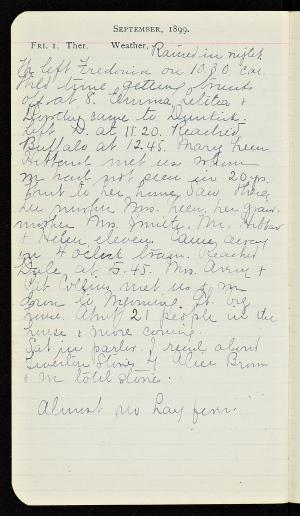 SEPTEMBER, 1899.
FRI. 1. Ther. Weather, Rained in night
We left Fredonia on 10.30 car.
Had time getting trunks
off at 8. Emma, Letitia &
Dorothy came to Dunkirk.
Left D. at 11.20. Reached
Buffalo at 12.45. Mary
Hibbard met us whom
m had not seen in 20 yrs.
Went to her home. Saw there
her mother Mrs. her grand
mother Mrs. Smith. Mr. Hibbard
& Helen eleven. Came away
on 4 o'clock train. Reached
Dale at 5.45. Mrs. Anny &
Pit Collins met us & m
down to Wyoming. Gt. big
house. Abt. 21 people in the
house & more coming.
Sat in parlor. I read aloud
Stories of Alice Brown
& m told stories.
Almost no hay fever.